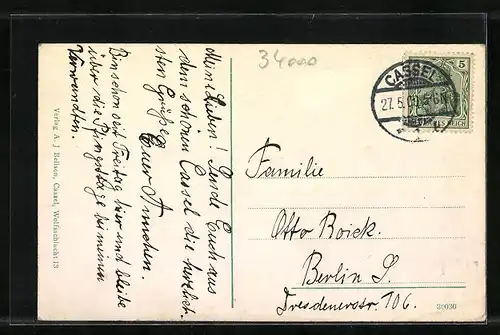 34000
Meine Lieben! Sende Euch aus
dem schönen Cassel die herzlich-
sten Grüße
Euer Annchen.
Bin schon seit Freitag hier und bleibe
über die Pfingsttage bei meinen
Verwandten.
Verlag A. J. Hellson, Cassel, Wolfsschlucht 13
CASSEL
27.5.
5
REICH
Familie
Otto Boick.
Berlin S.
Dresdenerstr. 106.